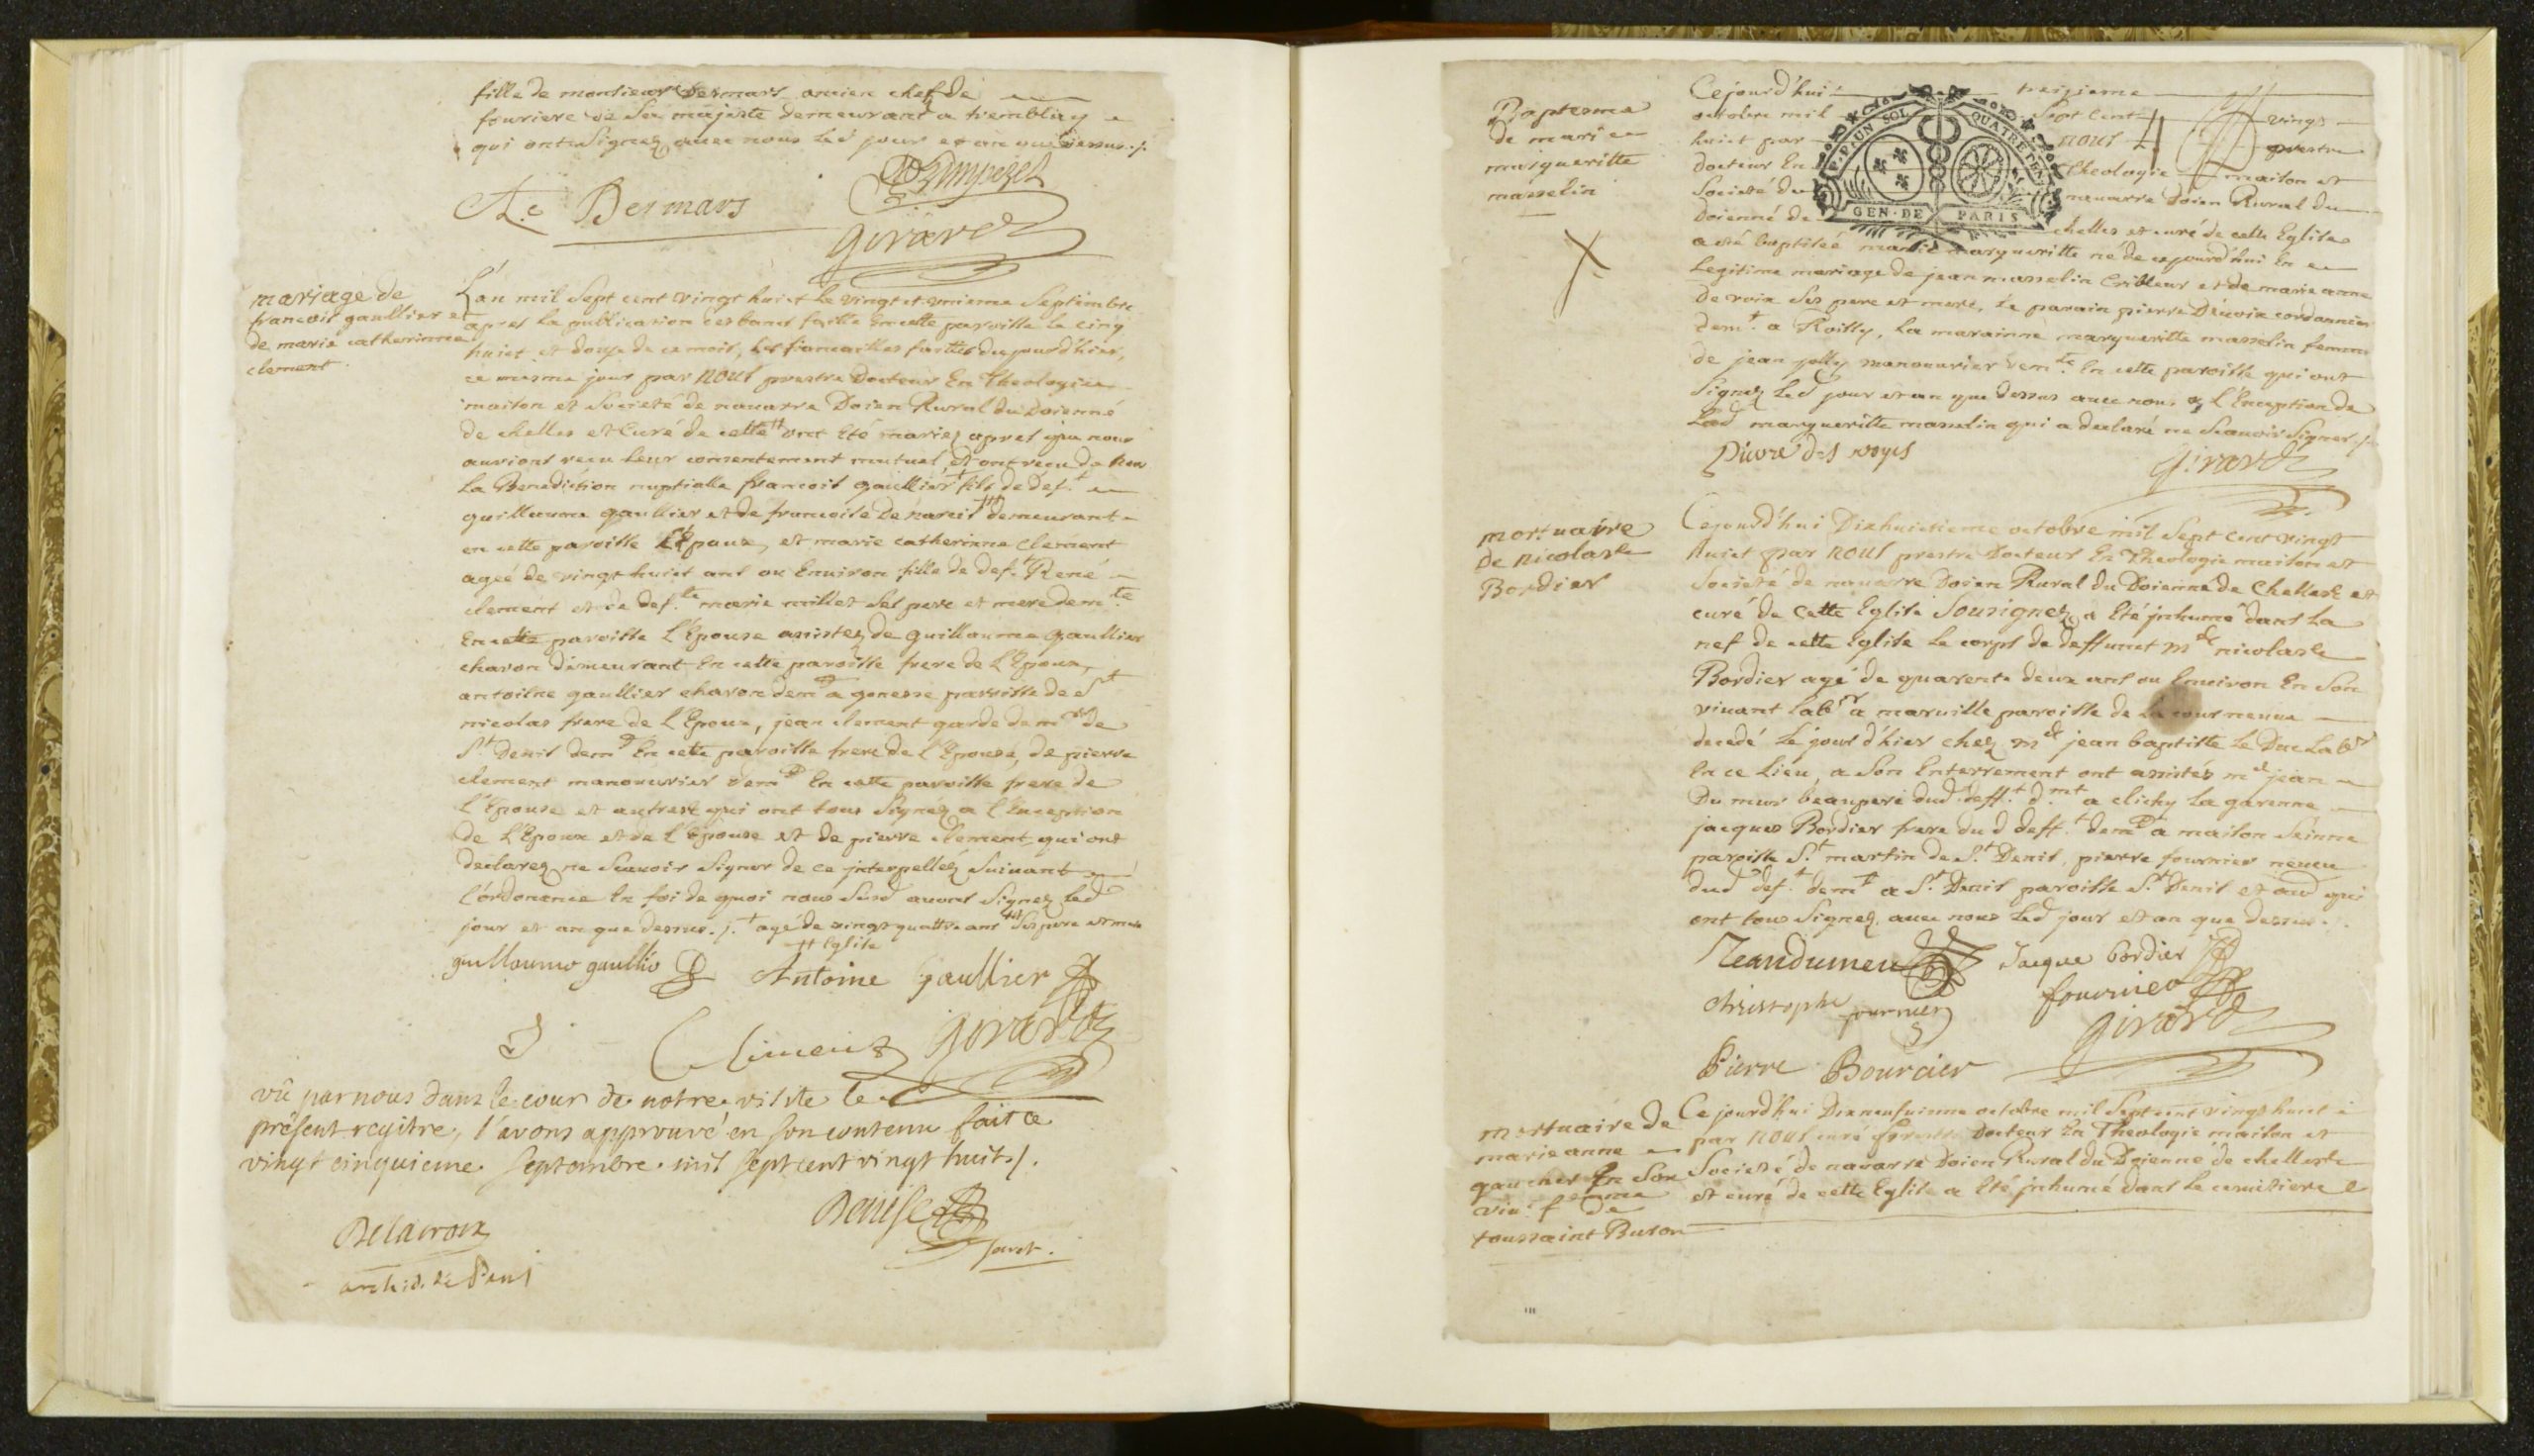 fille de monsieur Desmars ancien chef de
fouriere de Sa majesté demeurant a tremblay
qui ont Signez avec nous led jour et an que dessus ./.
Desmars
girard
mariage de
francois gaullier et
de marie catherinne
clement
L'an mil Sept cent vingt huict le vingt et unieme Septembre
apres la publication des bans faitte en cette paroisse le cinq
huict et douze de ce mois, les fiancailles faittes du jourd'hier,
ce mesme jour par nous prestre Docteur En Theologie
maison et Societé de navarre Doien Rural du Doienné
de chelles et Curé de cette †† ont Eté mariez apres que nous
aurions recu leur consentement mutuel, et ont recu de nous
la Benediction nuptialle francois gaullier † fils de def.t
guillaume gaullier et de francoise De nareit ††† demeurant
en cette paroisse L'Epoux, et marie catherinne clement
ageé de vingt huict ans ou Environ fille de def.t René
clement et de def.te marie millet Ses pere et mere dem.te
En cette paroisse L'Epouse assistez de guillaume gaullier
charon demeurant En cette paroisse frere de L'Epoux,
antoine gaullier charon dem.t a gonesse paroisse de St
nicolas frere de L'Epoux, jean clement garde de mrs de
St Denis dem.t En cette paroisse frere de l'Epouse, de pierre
clement manouvrier dem.t En cette paroisse frere de
L'Epouse et autres qui ont tous Signéz a l'Exception
de L'Epoux et de L'Epouse et de pierre clement qui ont
declarez ne Scavoir Signer de ce interpellez Suivant
l'ordonance En foi de quoi nous Susd avons Signez led
jour et an que dessus ./. † agé de vingt quattre ans ††† Ses pere et mere
†† Eglise
guillaume gaullie Antoine Gaullier
Clement girard
vû par nous dans le cour de notre visite le
présent regitre, l'avons approuvé en son contenu fait ce
vingt cinquieme Septembre mil sept cent vingt huit /.
Delacroix
Denise
archid. de Paris
Baptesme
de marie
margueritte
masselin
UN SOL QUATRE DEN.
GEN. DE PARIS
Cejourd'hui treizieme
octobre mil Sept Cent vingt
huict par nous prestre
docteur En Theologie maison et
Societé de navarre Doien Rural du
Doienné de chelles et curé de cette Eglise
a eté baptiseé marie margueritte né de cejourd'hui En
Legitime mariage de jean masselin Cribleur et de marie anne
De voix Ses pere et mere, Le parain pierre Devoix cordonnier
dem.t a Roissy, La marainne margueritte masselin femme
de jean jolly manouvrier dem.te En cette paroisse qui ont
Signez Led jour et an que dessus avec nous a L'Exception de
Lad margueritte masselin qui a declaré ne Scavoir Signer ./.
girard
mortuaire
de nicolas
Bordier
Cejourd'hui Dixhuictieme octobre mil Sept cent vingt
huict par nous prestre Docteur En Theologie maison et
Societé de navarre Doien Rural du Doienné de Chelles et
curé de cette Eglise Sousignez a Eté inhumé dans la
nef de cette Eglise Le corps de deffunct me nicolas
Bordier agé de quarente deux ans ou Environ En Son
vivant labr a marville paroisse de La cour neuve
decedé Le jour d'hier chez me jean baptiste Le Duc Labr
En ce Lieu, a Son Enterrement ont assistés me jean
Du mur beaupere dud deff.t d.mt a clichy La garenne
jacques Bordier frere du d deff.t dem.t a maison Seinne
paroisse St martin de St Denis, pierre fournier neveu
dud def.t dem.t a St Denis paroisse St Denis et au qui
ont tous Signez avec nous Led jour et an que dessus.
Jeandumeu Jacque bordier
christophe fournier fournier
girard
Pierre Bourcier
mortuaire de
marie anne
gaucher En Son
viv.t feme de
toussaint Buron
Ce jourd'hui Dixneufieme octobre mil Sept cent vingt huict
par nous curé prestre Docteur En Theologie maison et
Societé de navarre Doien Rural du Doienné de chelles
et curé de cette Eglise a Eté inhumé dans Le cemitiere